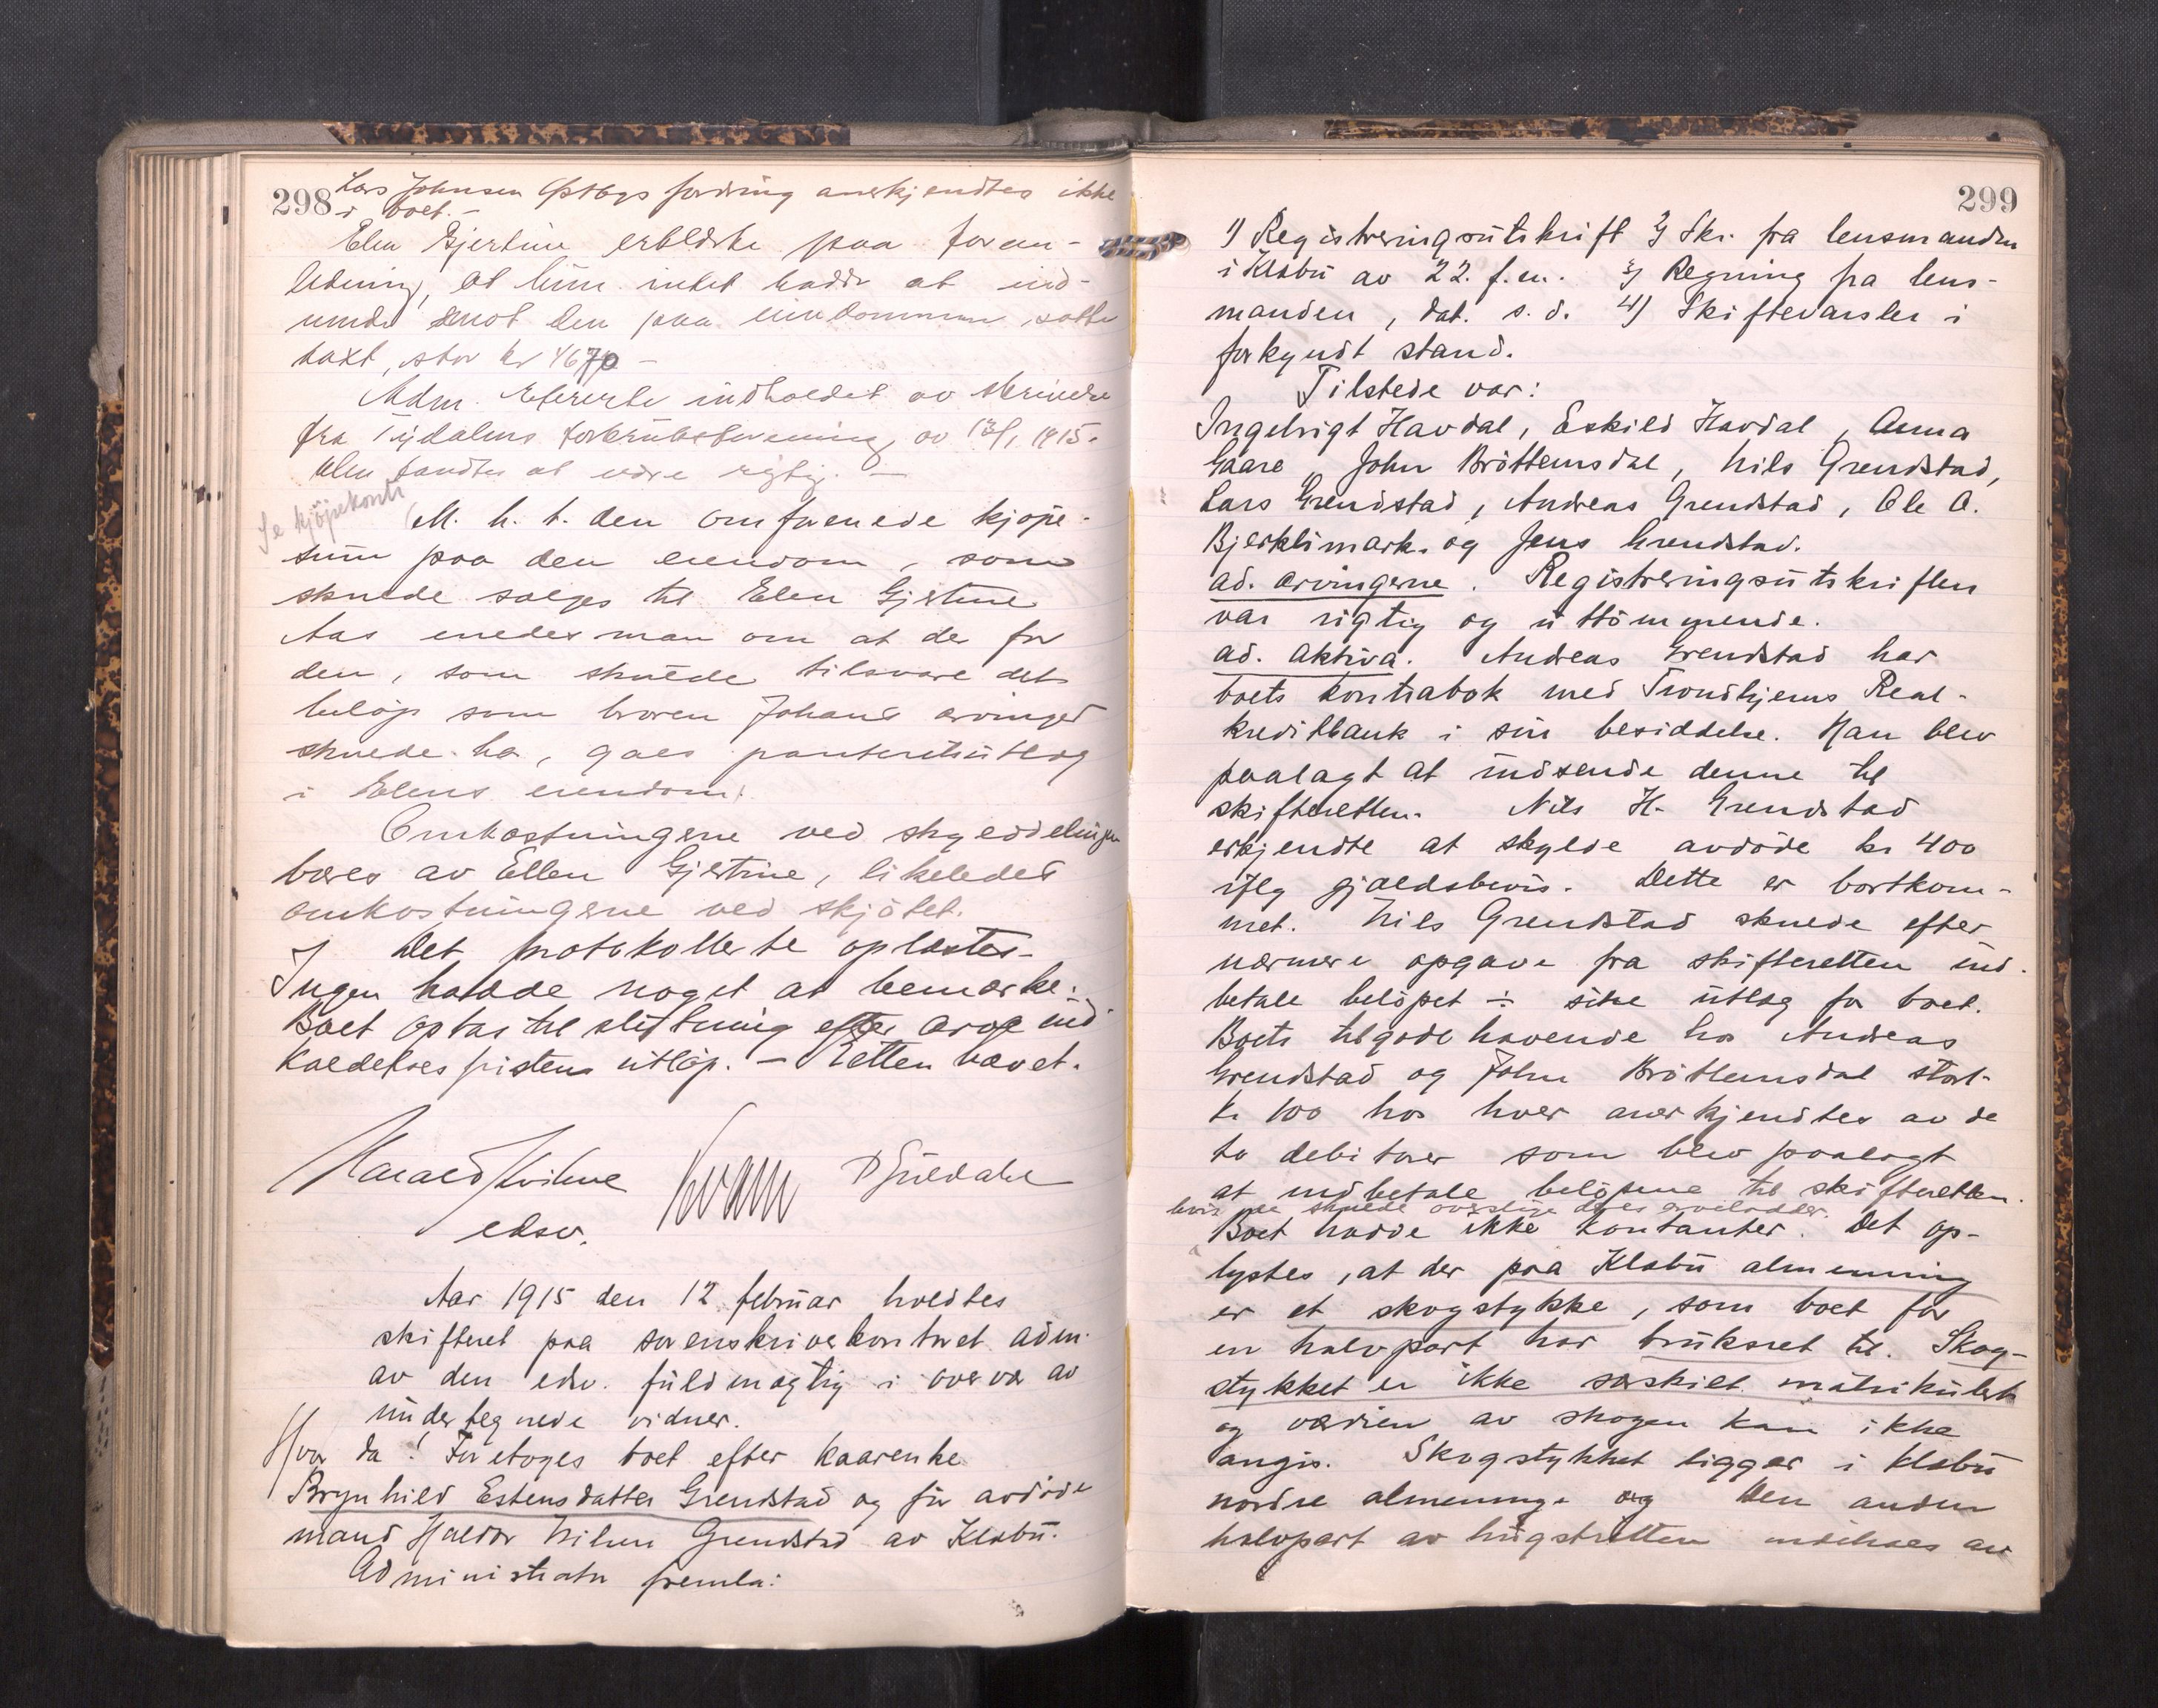 298
Lars Johnsen Østbys fordring anerkjendtes ikke
i boet. -
Elen Gjertine erklærte paa foran-
ledning, at hun intet hadde at ind-
vende imot den paa eiendommen satte
taxt, stor kr 4670 -
Adm. refererte indholdet av skrivelse
fra Tydalens forbruksforening av 13/1 1915.
Den fandtes at være rigtig. -
Se kjøpekontr
M. h. t. den omforenede kjøpe-
sum paa den eiendom, som
skulde sælges til Elen Gjertine
Aas enedes man om at der for
den, som skulde tilsvare det
beløp som broren Johans arvinger
skulde ha, gaes panteretsutlæg
i Elens eiendom.
Omkostningene ved skylddelingen
bæres av Ellen Gjertine, likeledes
omkostningerne ved skjøtet.
Det protokollerte oplæstes.
Ingen hadde noget at bemerke.
Boet optas til slutning efter
kaldelsesfristens utløp. - Retten hævet.
edsv.
Aar 1915 den 12 februar holdtes
skifteret paa sorenskriverkontoret adm.
av den edsv. fuldmægtig i overvær av
undertegnede vidner.
Hvor da: Foretoges boet efter kaarenke
Brynhild Estensdatter Grendstad og før avdøde
mand Haldor Nilsen Grendstad av Klæbu.
Administrator fremla:
299
1) Registreringsutskrift 2) Skr. fra lensmanden
i Klæbu av 22. f.m. 3) Regning fra lens-
manden, dat. s. d. 4) Skiftevarsler i
forkyndt stand.
Tilstede var:
Ingebrigt Havdal, Eskild Havdal, Anna
Gaare, John Brøttemsdal, Nils Grendstad,
Lars Grendstad, Andreas Grendstad, Ole O.
Bjerklimark. og Jens Grendstad.
ad. arvingerne. Registreringsutskriften
var rigtig og uttømmende.
ad. aktiva. Andreas Grendstad har
boets kontrabok med Trondhjems Real-
kreditbank i sin besiddelse. Han blev
paalagt at indsende denne til
skifteretten. Nils H. Grendstad
erkjendte at skylde avdøde kr 400
iflg gjældsbevis. Dette er bortkom-
met. Nils Grendstad skulde efter
nærmere opgave fra skifteretten ind-
betale beløpet ÷ sine utlæg for boet.
Boets tilgodehavende hos Andreas
Grendstad og John Brøttemsdal stort
kr 100 hos hver anerkjendtes av de
to debitorer som blev paalagt
at indbetale beløpene til skifteretten.
hvis de skulde overstige deres arvelodder.
Boet hadde ikke kontanter. Det op-
lystes, at der paa Klæbu almenning
er et skogstykke, som boet for
en halvpart har bruksret til. Skog-
stykket er ikke særskilt matrikulert
og værdien av skogen kan ikke
angis. Skogstykket ligger i Klæbu
nordre almenninge og den anden
halvpart av hugstretten indehaes av